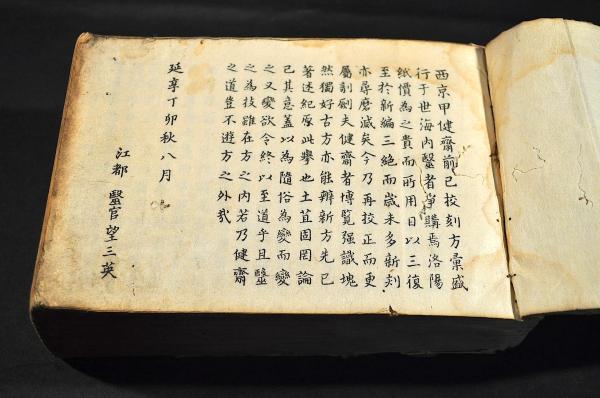 西京甲健齋前已挍刻方彙盛
行于世海内醫者爭購焉洛陽
紙價為之貴而所用日以三復
至於新編三絶而歳未多新刻
亦尋磨滅矣今乃再挍正而更
屬剞劂夫健齋者博覧强識塊
然獨好古方亦能辨新方先已
著述紀原此擧也土苴固罔論
已其意蓋以為隨俗為變而變
之又變欲令終以至道乎且醫
之為技雖在方之内若乃健齋
之道豈不遊方之外哉
延享丁卯秋八月
江都 醫官望三英